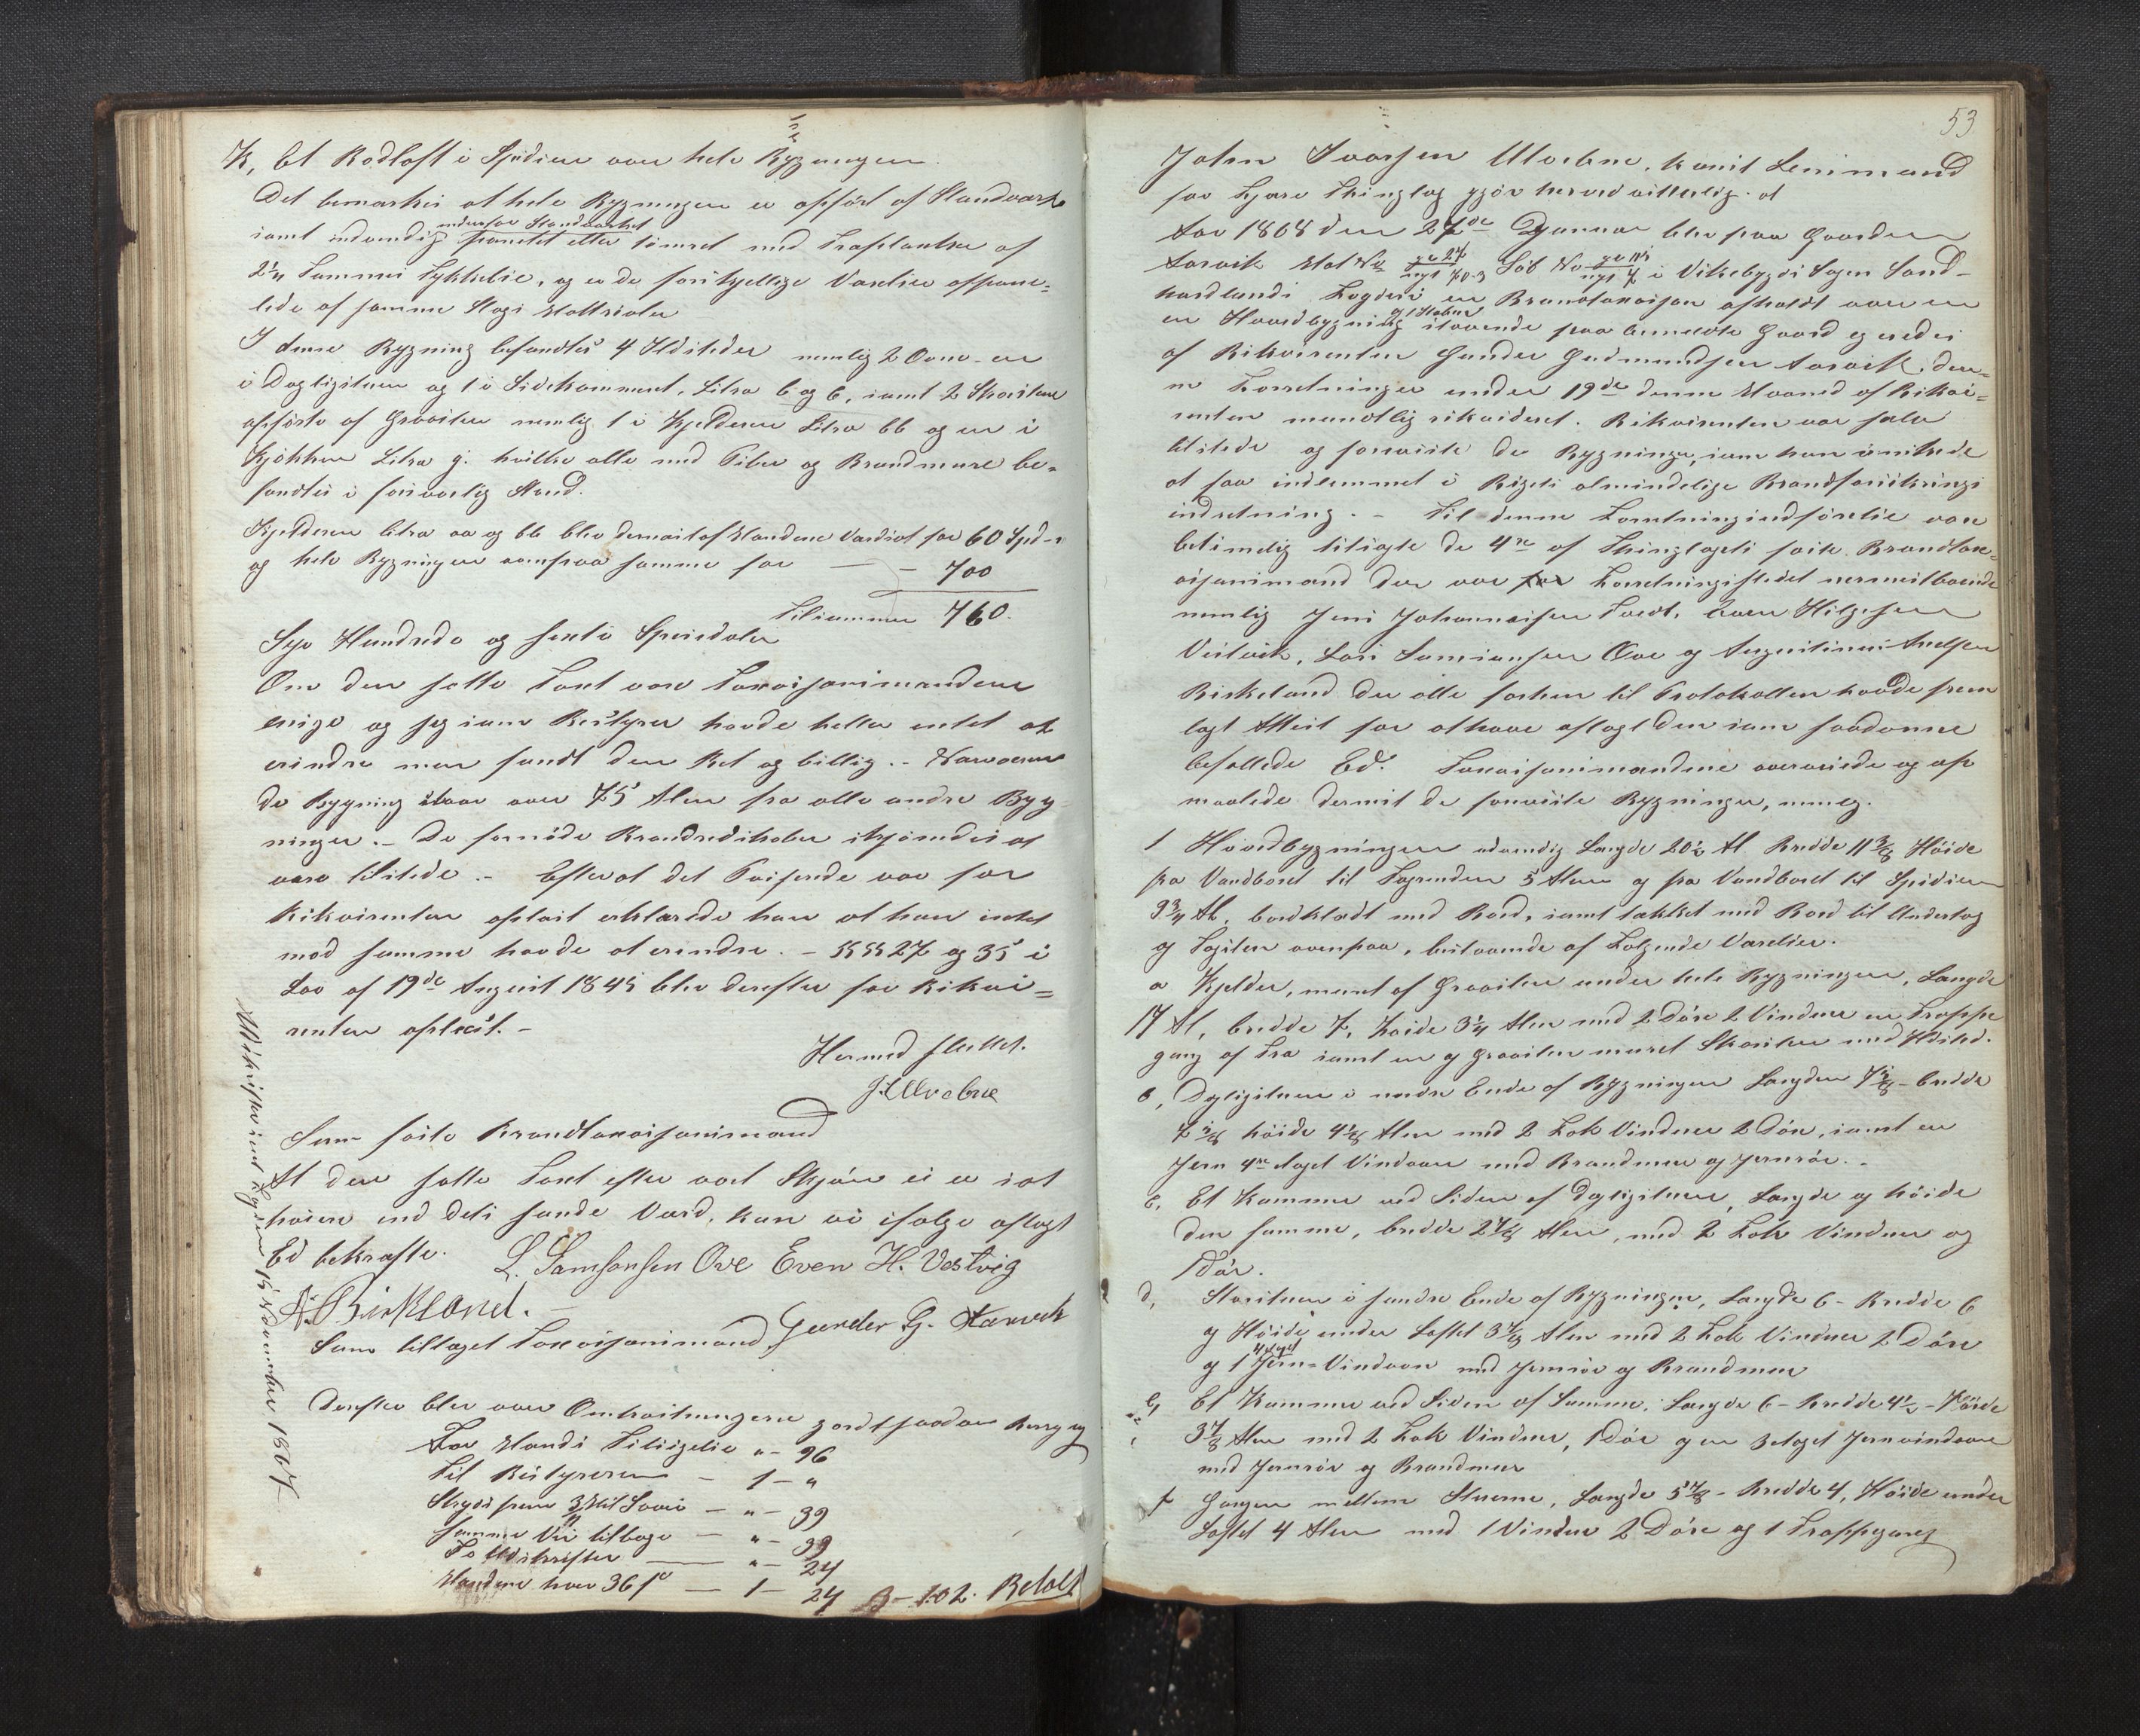 K, Et Rodloft i Spidsen over hele Bygningen.
Det bemærkes at hele Bygningen er opført af Standværk
indenfor Standværket
samt indvendig panelet eller tømret med Træplanker af
2 1/4 Tommes Tykkelse, og er de forskjellige Værelser afpane-
lede af samme Slags Mattrialer
I denne Bygning befandtes 4 Ildsteder nemlig 2 Ovne - en
i Dagligstuen og 1 i Sidekammeret, Litra b og c, samt 2 Skorstene
opførte af Graasten nemlig 1 i Kjelderen Litra bb og en i
Kjøkken Litra g. hvilke alle med Piber og Brandmure be-
fandtes i forsvarlig Stand.
Kjelderen litra aa og bb blev dernæst af Mændene Værdsat for 60 Spd
og hele Bygningen ovenpaa samme for — — 700
Tilsammen 760.
Syv Hundrede og sexti Speciedaler
Om den satte Taxt vare Taxasjonsmændene
enige og jeg som Bestyrer havde heller intet at
erindre men fandt den Ret og billig. - Nærværen
de Bygning staar over 75 Alen fra alle andre Byg
ninger. - De fornødne Brandredskaber skjøndes at
være tilstede. - Efterat det Passerede var for
Rikvirenten oplæst erklærede han at han intet
mod samme havde at erindre. - §§ 27 og 35 i
Lov af 19de August 1845 blev derefter for Rikvi-
renten oplæst. -
Hermed sluttet.
J. Ulvebne
Som faste Brandtaxasjonsmænd
At den satte Taxt efter vort Skjøn ei er sat
høiere end dets sande Værd, kan vi ifølge aflagt
Ed bekræfte. L. Samsonsen Ove Even H. Vestvig
A. Birkland. -
Som tiltaget Taxasjonsmand, Gunder G. Aarvik
Derefter blev over Omkostningerne gjordt saadan Beregng
For Mænds Tilsigelse " - 96
Til Bestyreren — 1 - "
Skyds frem 3/4 Mil Søvei — " - 39
Samme Vei tilbage — " - 39
To Udskrifter — " - 24
Mændene hver 36 s — 1 - 24 3 - 102. Betalt
Udskrifter udstædt 15 November 1867
53
John Iversen Ulvebne, konst Lensmand
for Fjære Thinglag gjør hervid vitterlig. at
Aar 1868 den 27de Januar blev paa Gaarden
Aarvik Mat No gl 27 nyt 40-3 Løb No i Vikebygds Sogn Sønd-
hordlands Fogderi en Brandtaxasjon afholdt over en
og Stabur
en Hovedbygning staaende paa bemeldte Gaard eiendes
af Rikvirenten Gunder Gudmundsen Aarvik, den-
ne Forretninger under 19de denne Maaned af Rikvi-
renten mundtlig rikvideret. Rikvirenten var selv
tilstede og forviiste de Bygninger, som han ønskede
at faa indlemmet i Rigets almindelige Brandforsikrings
indretning. - Til denne Forretnings indførelse vare
betimelig tilsagte de 4re af Thinglagets faste Brandtax-
asjonsmænd der vare Forretningsstedet nærmest boende
nemlig Jens Johannessen Tvedt, Even Helgesen
Vestvik, Lars Samsonsen Ove og Augustinus Anelsen
Birkeland der alle forhen til Protokollen havde frem
lagt Attest for at have aflagt den som saadanne
befallede Ed. Taxasjonsmændene overveiede og op
maalede dermed de forviiste Bygninger, nemlig.
1 Hovedbygningen udvendig Længde 20 1/2 Al Bredde 11 3/8 Høide
fra Vandbord til Tagrenden 5 Alen og fra Vandbord til Spidsen
9 3/4 Al, bordklædt med Bord, samt tækket med Bord til Undertag
og Tagsten ovenpaa, bestaaende af Følgende Værelser.
a Kjelder, muret af Graasten under hele Bygningen, Længde
17 Al, bredde 7, høide 3 1/4 Alen med 2 Døre 2 Vinduer en Trappe
gang af Træ samt en af Graasten muret Skorsten med Ildsted.
b, Dagligstuen i nordre Ende af Bygningen Længden 7 5/8 - bredde
7 5/8 høide 4 1/8 Alen med 2 Fak Vinduer 2 Døre, samt en
Jern 4re etages Vindovn med Brandmur og Jernrør. -
c, Et Kammer ved Siden af Dagligstuen, Længde og høide
den samme, bredde 2 7/8 Alen, med 2 Fak Vinduer og
1 Dør.
d, Storstuen i søndre Ende af Bygningen, Længde 6 - Bredde 6
og Høide under Loftet 3 7/8 Alen med 2 Fak Vinduer 2 Døre
4 etages
og 1 Jern-Vindovn med Jernrør og Brandmur
e, Et Kammer ved Siden af Samme, Længde 6 - Bredde 4 1/2 - Høide
3 7/8 Alen med 2 Fak Vinduer, 1 Dør og en 3 etages Jernvindovn
med Jernrør og Brandmur
f Gangen mellem Stuerne, Længde 5 7/8 - Bredde 4, Høide under
Loftet 4 Alen med 1 Vindue 2 Døre og 1 Trappegang